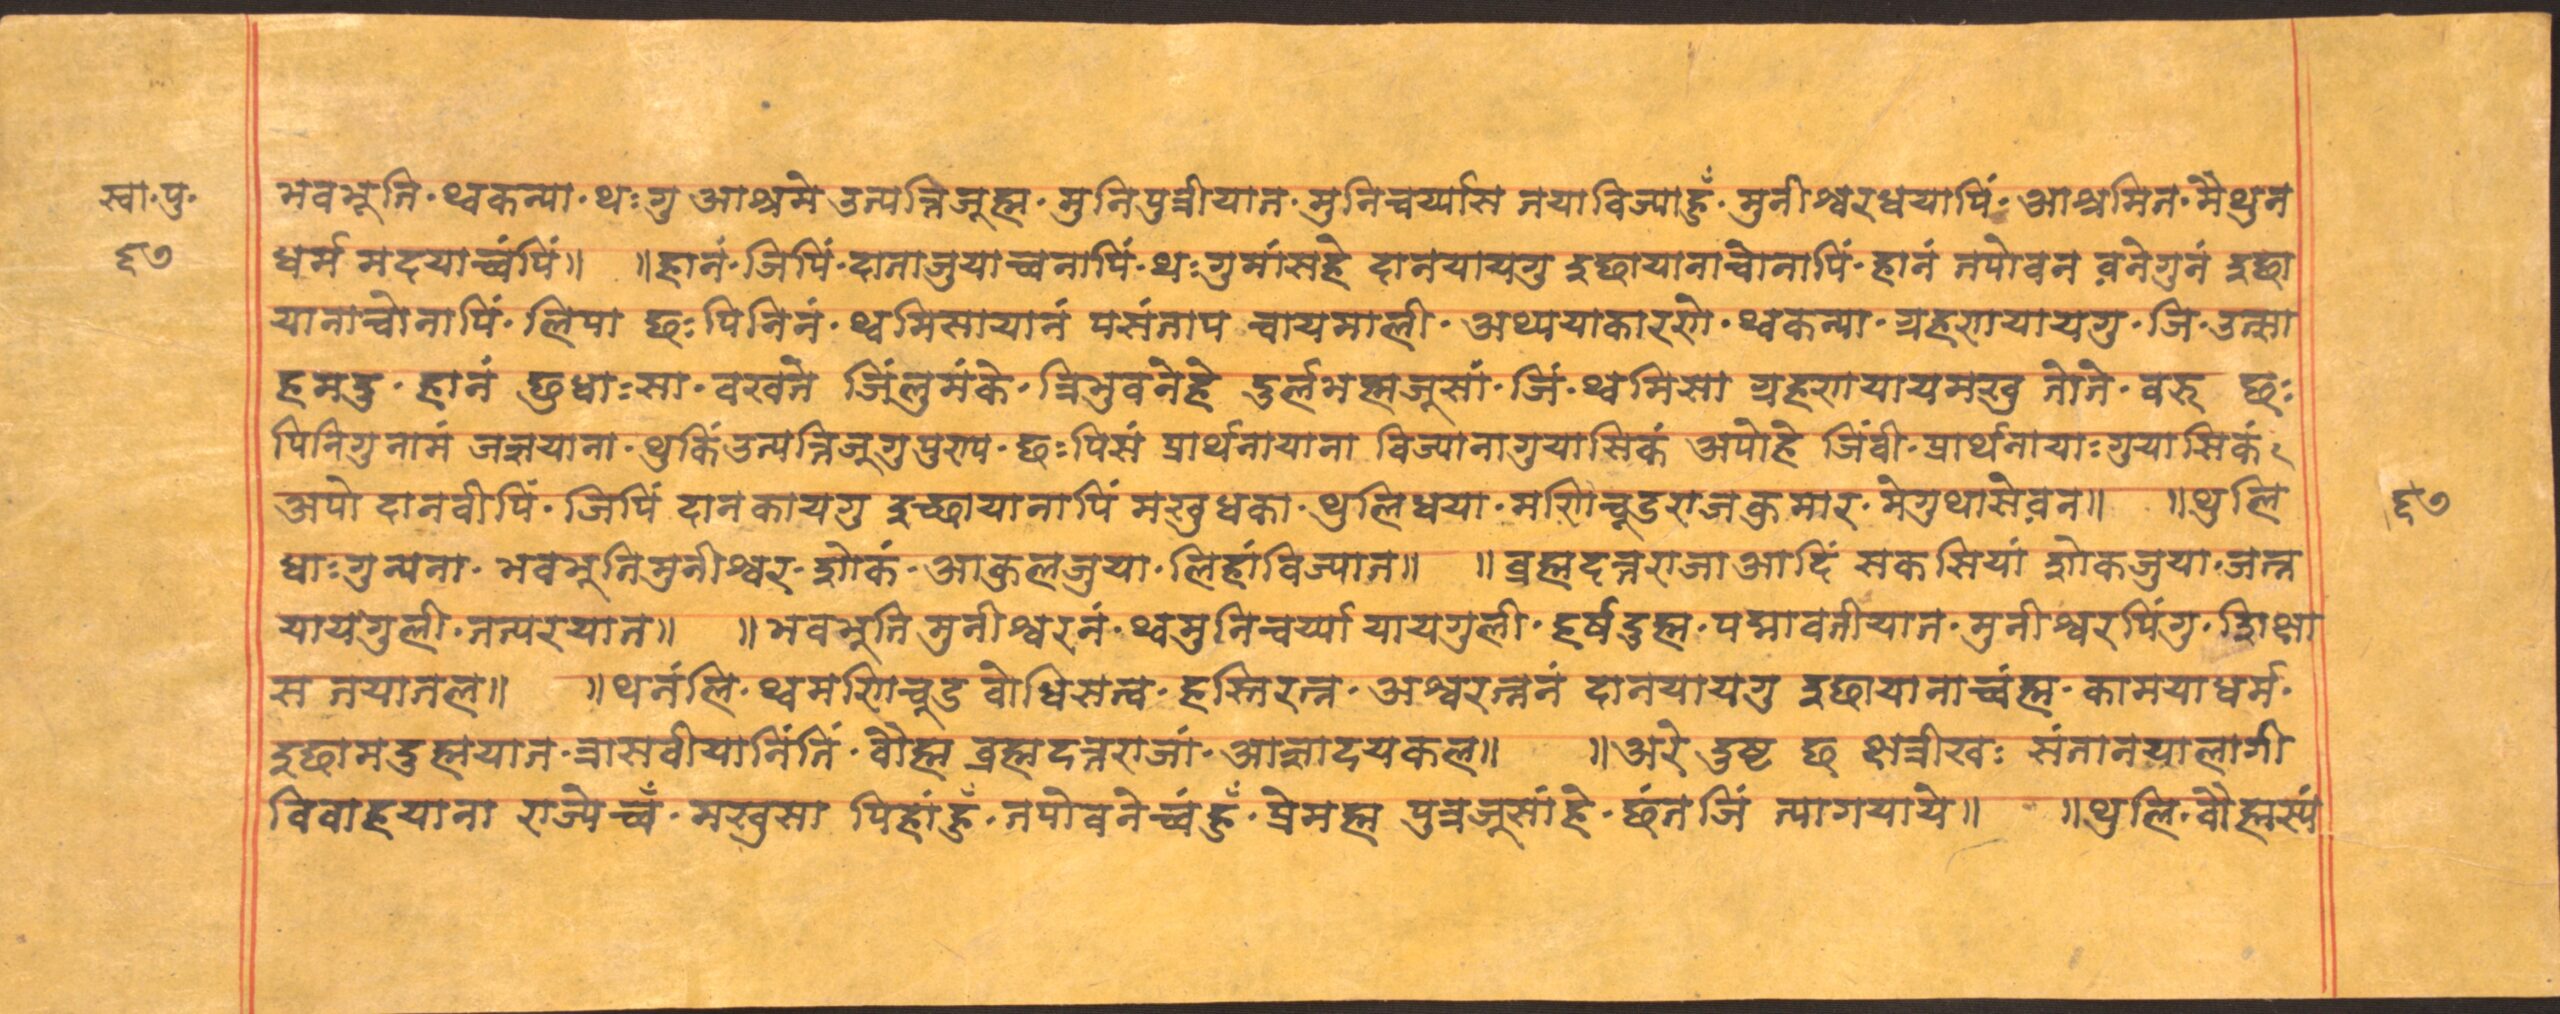 स्वा·पु·
६७
भवभूति·थ्वकन्या·थःगु आश्रमे उत्पत्तिजूह्म·मुनिपुत्रीयात·मुनिचर्य्यास तयाविज्याहुँ·मुनीश्वरधयापिं·आश्रमिन·मैथुन
धर्म मदयाच्वंपिं॥ ॥हानं·जिपिं·दाताजुयाच्वनापिं·थःगुमांसहे दानयायगु इछायानाचोनापिं·हानं तपोवन वनेगुनं इछा
यानाचोनापिं·लिपा छःपिनिनं·थ्वमिसायानं पसंताप चायमाली·अथ्ययाकारणे·थ्वकन्या·ग्रहणयायगु·जि·उत्सा
हमदु·हानं छुधाःसा·वखतेे जिंलुमंके·त्रिभुवनेहे दुर्लभह्मजूसां·जिं·थ्वमिसा ग्रहणयायमखु तोते·वरु छः
पिनिगुनामं जज्ञयाना·थुकिंउत्पत्तिजूगुपुण्य·छःपिसं प्रार्थनायाना विज्यानागुयासिकं अपोहे जिंवी·प्रार्थनायाःगुयासिकं
अपो दानवीपिं·जिपिं दानकायगु इच्छायानापिं मखुधका·थुलिधया·मणिचूडराजकुमार·मेगुथासेवन॥ ॥थुलि
६७
धाःगुन्यना·भवभूतिमुनीश्वर·शोकं·आकुलजुया·लिहांविज्यात॥ ॥ब्रह्मदत्तराजाआदिं सकसियां शोकजुया·जज्ञ
यायेगुली·तत्परयात॥ ॥भवभूतिमुनीश्वरनं·थ्वमुनिचर्य्या यायगुली·हर्षदुह्म·पद्मावतीयात·मुनीश्वरपिंगु·शिक्षा
स तयातल॥ ॥थनंलि·थ्वमणिचूड बोधिसत्व·हस्तिरत्न·अश्वरत्ननं दानयायगु इछायानाच्वंह्म·कामयाधर्म·
इछामदुह्मयात·त्रासवीयानिंतिं·वौह्म ब्रह्मदत्तराजां·आज्ञादयकल॥ ॥अरे दुष्ट छ क्षत्रीखः संतानयालागी
विवाहयाना राज्येच्वँ·मखुसा पिहांहुँ·तपोवनेच्वंहुँ·प्रेमह्म पुत्रजूसांहे·छंतजिं त्यागयाये॥ ॥थुलि·वौह्मस्यं